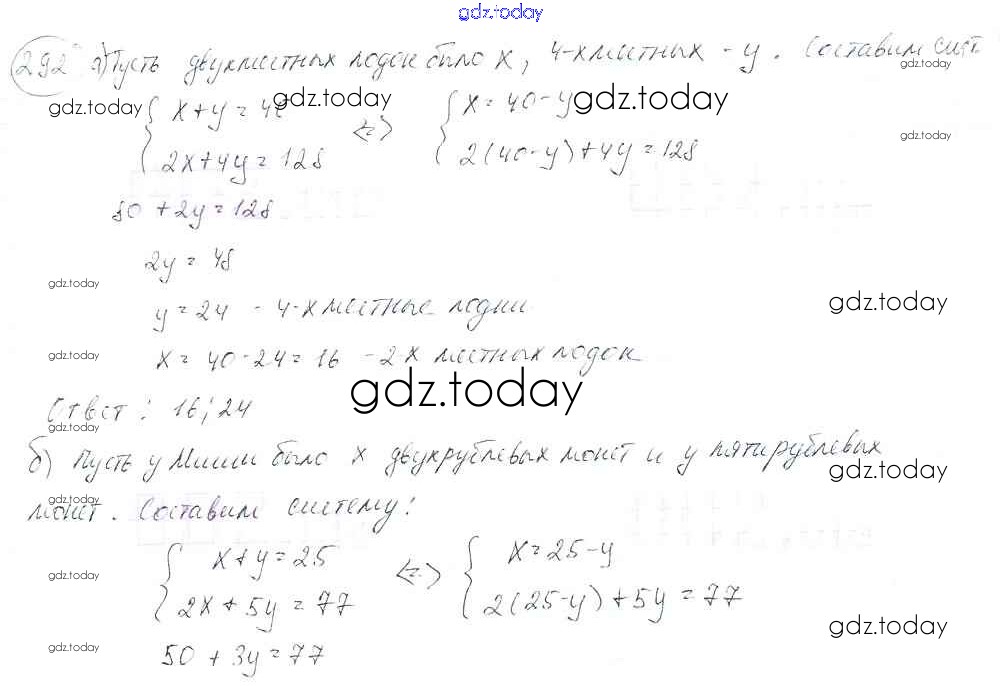 gdz.today
292 а) Пусть двухместных лодок было x, 4-хместных - y. Составим сист
gdz.today
gdz.today gdz.today gdz.today
{ x+y=40 <=> { x=40-y
gdz.today
{ 2x+4y=128 { 2(40-y)+4y=128
80+2y=128
2y=48
gdz.today gdz.today
y=24 - 4-х местные лодки
x=40-24=16 - 2х местных лодок
gdz.today
gdz.today
Ответ: 16; 24
gdz.today
б) Пусть у Миши было x двухрублевых монет и y пятирублевых
gdz.today
gdz.today
монет. Составим систему:
{ x+y=25 <=> { x=25-y
gdz.today
{ 2x+5y=77 { 2(25-y)+5y=77
gdz.today
gdz.today
50+3y=77